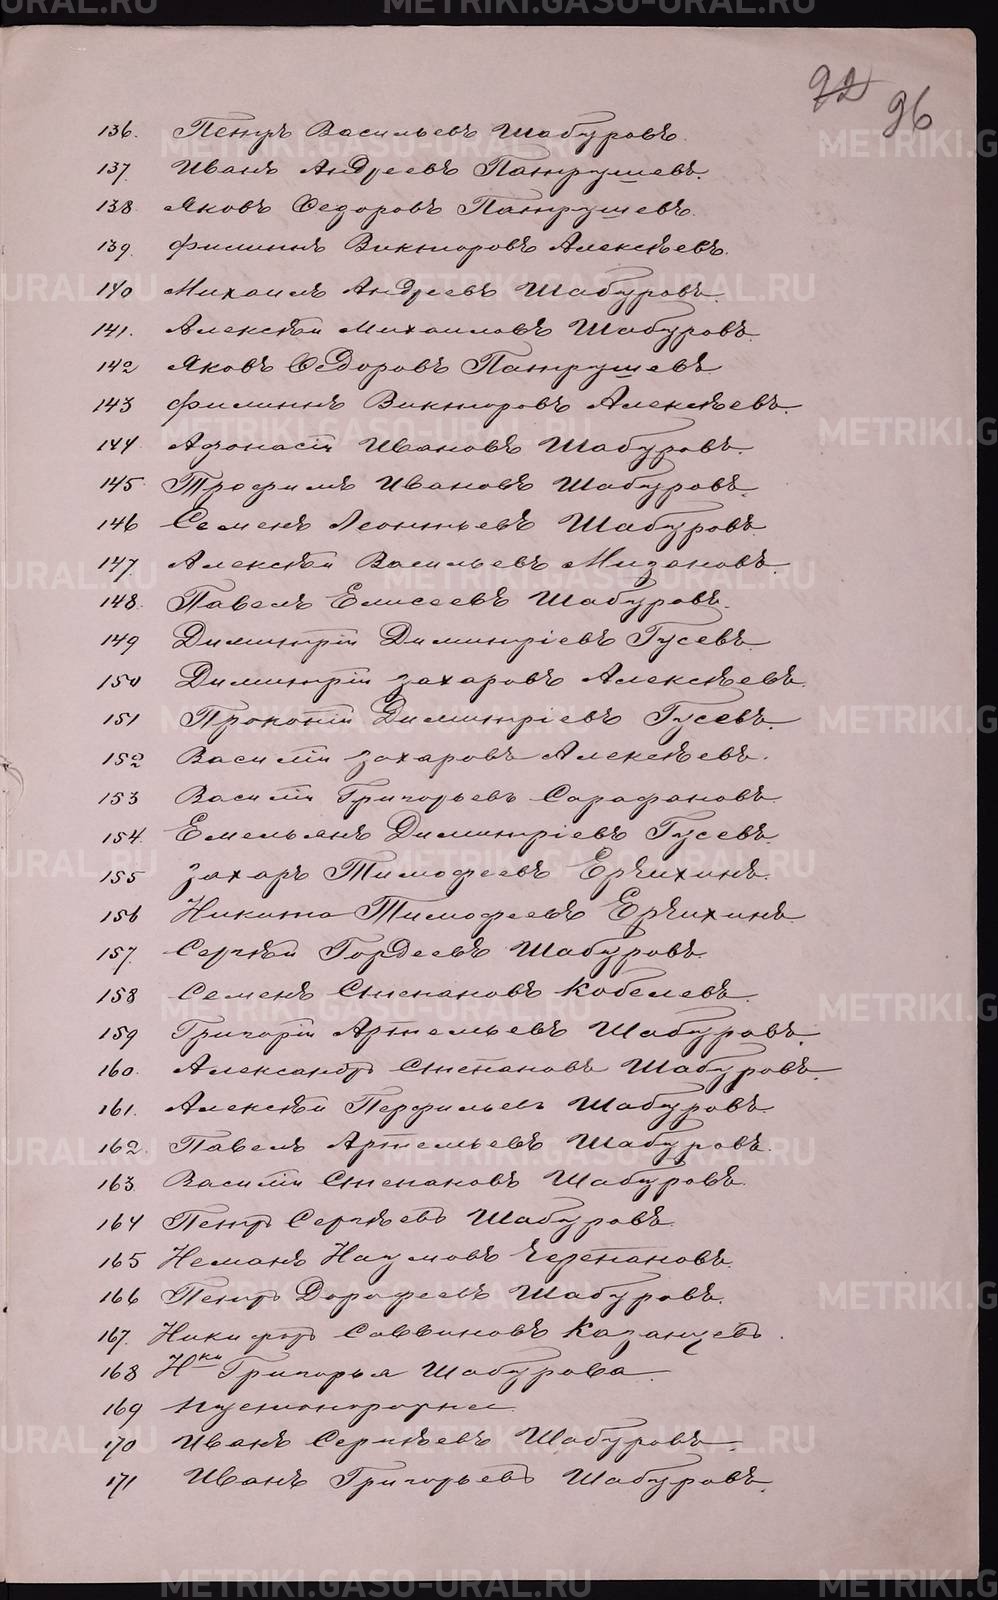 92
96
136. Петръ Васильевъ Шабуровъ.
137. Иванъ Андреевъ Патрушевъ.
138. Яковъ Федоровъ Патрушевъ.
139. Филиппъ Викторовъ Алексѣевъ.
140 Михаилъ Андреевъ Шабуровъ.
141. Алексѣй Михаиловъ Шабуровъ.
142 Яковъ Федоровъ Патрушевъ
143 Филиппъ Викторовъ Алексѣевъ.
144 Афонасій Ивановъ Шабуровъ.
145 Трофимъ Ивановъ Шабуровъ.
146 Семенъ Леонтьевъ Шабуровъ
147. Алексѣй Васильевъ Мизоновъ.
148. Павелъ Елисеевъ Шабуровъ.
149 Димитрій Димитріевъ Гусевъ.
150 Димитрій Захаровъ Алексѣевъ.
151 Прокопій Димитріевъ Гусевъ.
152 Василій Захаровъ Алексѣевъ.
153 Василій Григорьевъ Сарафановъ.
154. Емельянъ Димитріевъ Гусевъ.
155 Захаръ Тимофеевъ Ерѣихинъ.
156 Никита Тимофеевъ Ерѣихинъ.
157. Сергѣй Гордеевъ Шабуровъ.
158 Семенъ Степановъ Кобелевъ.
159 Григорій Артемьевъ Шабуровъ.
160. Александръ Степановъ Шабуровъ.
161. Алексѣй Перфильевъ Шабуровъ.
162. Павелъ Артемьевъ Шабуровъ.
163. Василій Степановъ Шабуровъ.
164 Петръ Сергѣевъ Шабуровъ.
165 Неманъ Наумовъ Черепановъ.
166 Петръ Дорофеевъ Шабуровъ.
167. Никифоръ Саввиновъ Казанцевъ.
168 Нки Григорья Шабурова.
169 Пустопорожнее
170 Иванъ Сергѣевъ Шабуровъ.
171 Иванъ Григорьевъ Шабуровъ.
METRIKI.GASO-URAL.RU